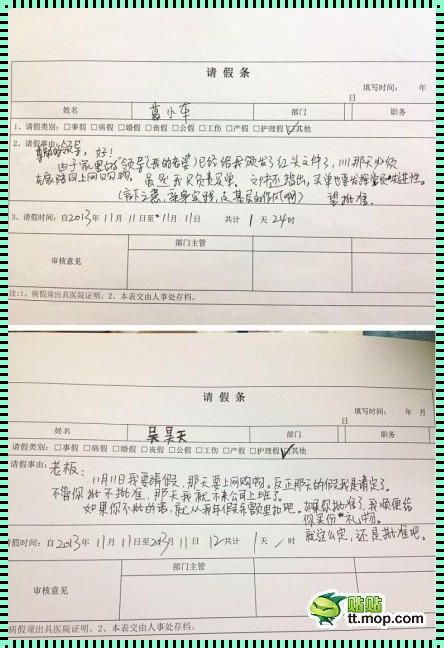 请假条
填写时间： 年
日
姓名 葛小车 部门 职务
1、请假类别：□事假 □病假 □婚假 □丧假 □公假 □工伤 □产假 □护理假 ☑其他
2、请假事由：
领导，好！
由于家里的领导(我的老婆)已经给我颁发了红头文件了，11.11那天必须
在家陪同上网购物。虽然我只负责买单。文件还指出，买单也要发挥党员先进性。
(言下之意，亲身实践，是基层的作风啊) 望批准。
3、请假时间：自2013年11月11日至11月11日 共计1天24时
部门主管
审核意见
注:1、病假须出具医院证明。2、本表交由人事处存档。
请假条
填写时间： 年 月
日
姓名 吴昊天 部门 职务
请假类别：□事假 □病假 □婚假 □丧假 □公假 □工伤 □产假 □护理假 ☑其他
请假事由：老板：
11月11日我要请假，那天要上网购物。反正那天的假我是请定了。
不管你批不批准，那天我就不来公司上班了。
如果你不批的话，就从我年假余额里扣吧。如果你批准了，我顺便给
你买份礼物。
就这么定，还是批准吧。
请假时间：自2013年11月11日至2013年11月11日 12 共计1天 时
部门主管
审核意见
病假须出具医院证明。2、本表交由人事处存档。
贴贴
tt.mop.com